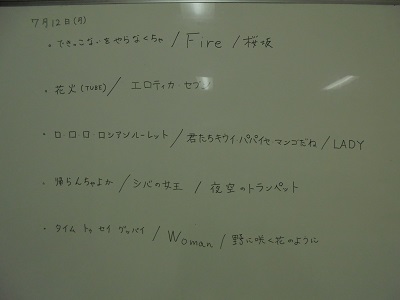 7月12日(月)
・できっこないをやらなくちゃ / Fire / 桜坂
・花火(TUBE) / エロティカ・セブン
・ロ・ロ・ロ ロシアンルーレット / 君たちキウイ・パパイヤ・マンゴだね / LADY
・帰らんちゃよか / シバの女王 / 夜空のトランペット
・タイム トゥ セイ グッバイ / Woman / 野に咲く花のように